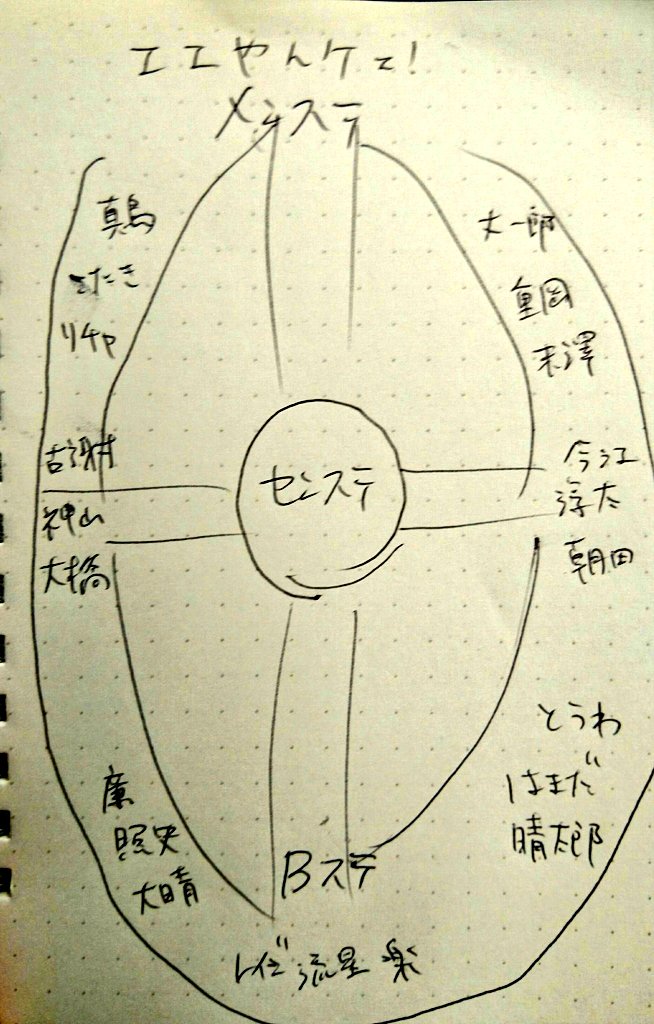 エエやんケェ!
メンステ
真鳥
こたき
リチャ
丈一郎
重岡
末澤
古謝
神山
大橋
センステ
今江
淳太
朝田
とうわ
はまだ
晴太郎
廉
照史
大晴
Bステ
流星 楽